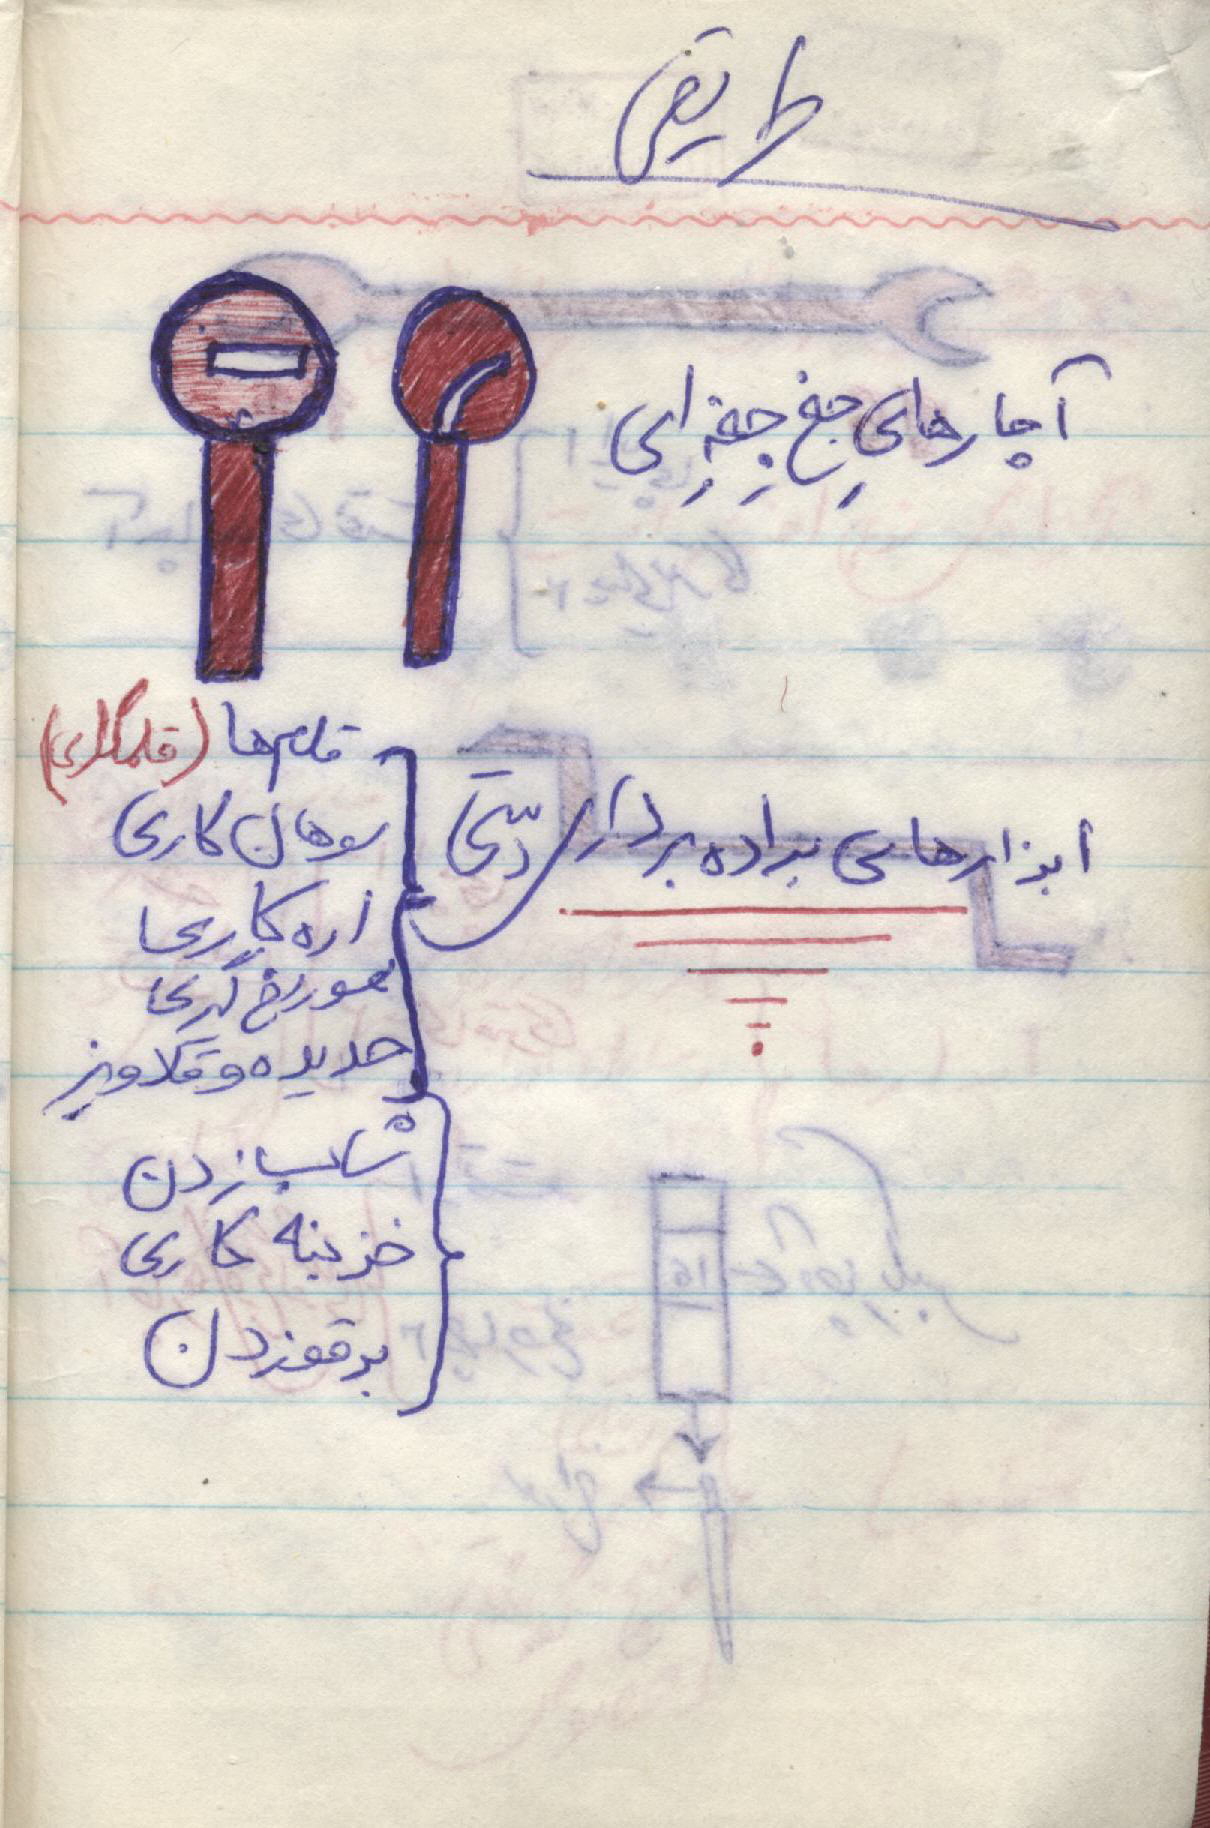 طریقی
آچارهایِ جغ جِغِه اِی
ابزارهای براده بردار دستی
قلم ها (قلمکاری)
سوهان کاری
اره کاری
سوراخ گیری
حدیده و قلاویز
شابر زدن
خزینه کاری
برقو زدن